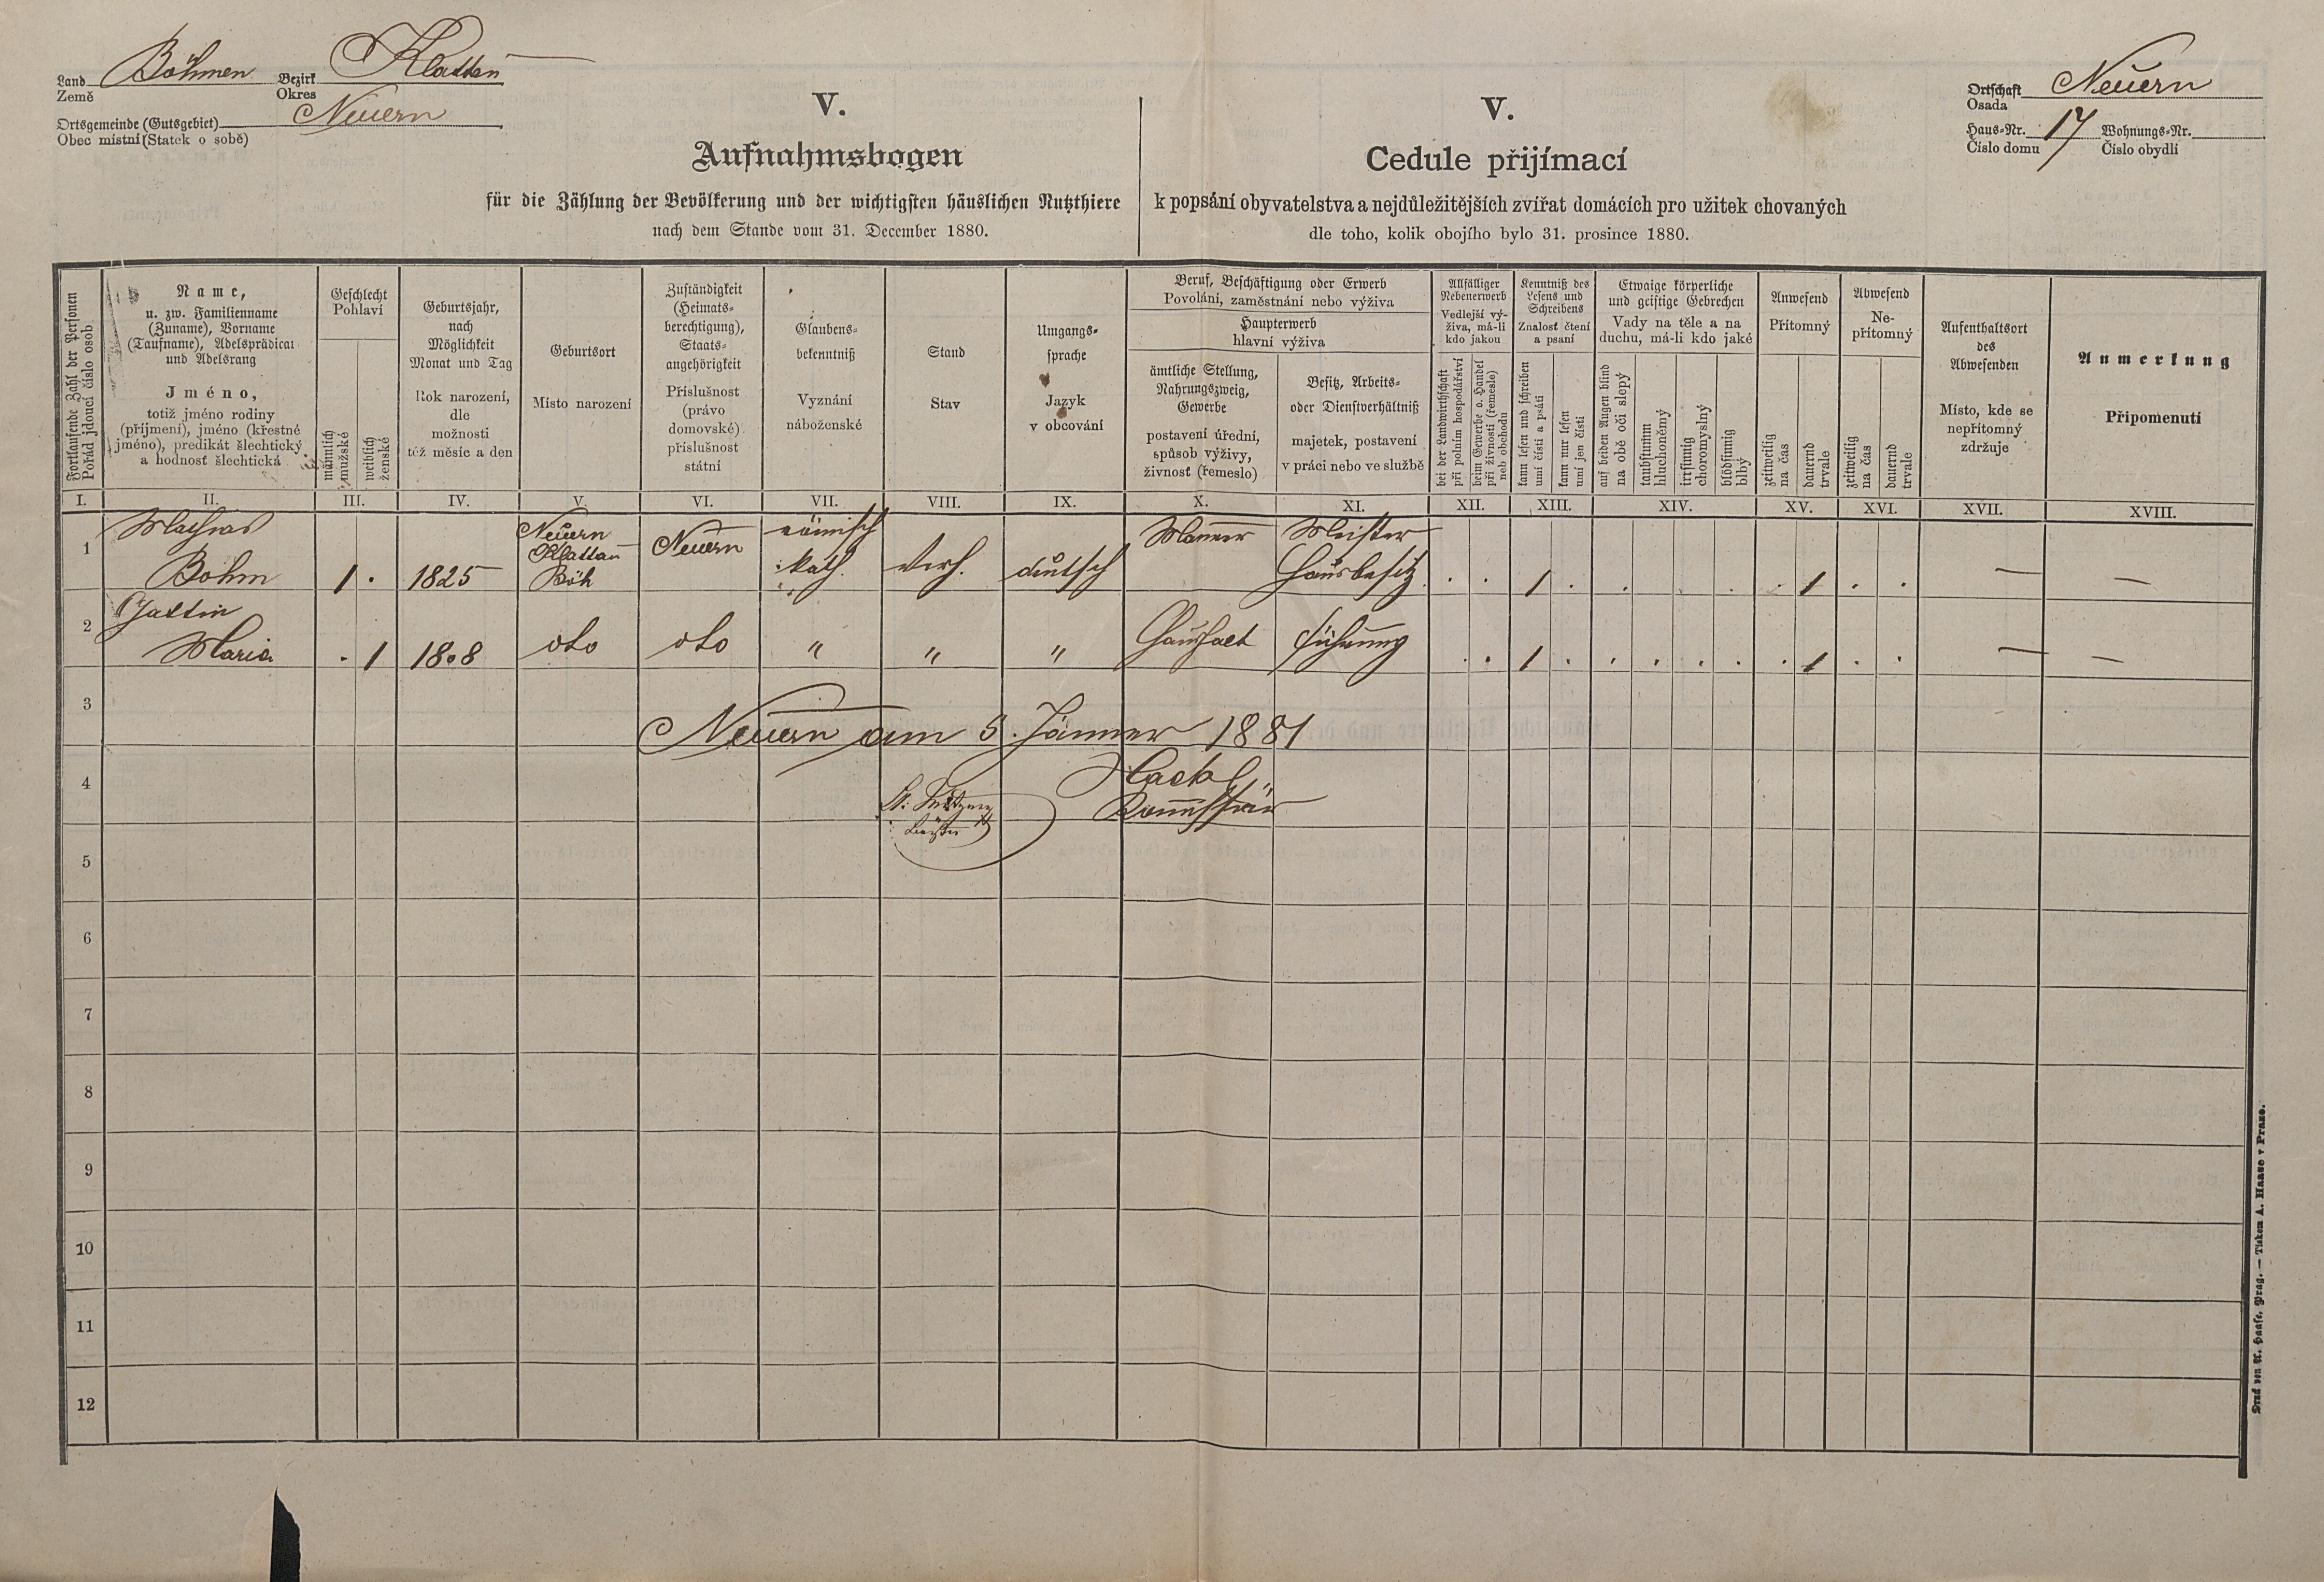 Land Böhmen Bezirk Klattau
Země Okres
Ortsgemeinde (Gutsgebiet) Neuern
Obec místní (Statek o sobě)
V.
Aufnahmsbogen
für die Zählung der Bevölkerung und der wichtigsten häuslichen Nutzthiere
nach dem Stande vom 31. December 1880.
V.
Cedule přijímací
k popsání obyvatelstva a nejdůležitějších zvířat domácích pro užitek chovaných
dle toho, kolik obojího bylo 31. prosince 1880.
Ortschaft Neuern
Osada
Haus-Nr. 17 Wohnungs-Nr.
Číslo domu Číslo obydlí
Fortlaufende Zahl der Personen
Pořád jdoucí číslo osob
Name,
u. zw. Familienname
(Zuname), Vorname
(Taufname), Adelsprädicat
und Adelsrang
Jméno,
totiž jméno rodiny
(příjmení), jméno (křestné
jméno), predikát šlechtický
a hodnosť šlechtická
Geschlecht
Pohlaví
männlich
mužské
weiblich
ženské
Geburtsjahr,
nach
Möglichkeit
Monat und Tag
Rok narození,
dle
možnosti
též měsíc a den
Geburtsort
Místo narození
Zuständigkeit
(Heimats-
berechtigung),
Staats-
angehörigkeit
Příslušnost
(právo
domovské)
příslušnost
státní
Glaubens-
bekenntniß
Vyznání
náboženské
Stand
Stav
Umgangs-
sprache
Jazyk
v obcování
Beruf, Beschäftigung oder Erwerb
Povolání, zaměstnání nebo výživa
Haupterwerb
hlavní výživa
ämtliche Stellung,
Nahrungszweig,
Gewerbe
postavení úřední,
spůsob výživy,
živnosť (řemeslo)
Besitz, Arbeits-
oder Dienstverhältniß
majetek, postavení
v práci nebo ve službě
Allfälliger
Nebenerwerb
Vedlejší vý-
živa, má-li
kdo jakou
bei der Landwirthschaft
při polním hospodářství
beim Gewerbe o. Handel
při živnosti (řemesle)
neb obchodu
Kenntniß des
Lesens und
Schreibens
Znalosť čtení
a psaní
kann lesen und schreiben
umí čísti a psáti
kann nur lesen
umí jen čísti
Etwaige körperliche
und geistige Gebrechen
Vady na těle a na
duchu, má-li kdo jaké
auf beiden Augen blind
na obě oči slepý
taubstumm
hluchoněmý
irrsinnig
choromyslný
blödsinnig
blbý
Anwesend
Přítomný
zeitweilig
na čas
dauernd
trvale
Abwesend
Ne-
přítomný
zeitweilig
na čas
dauernd
trvale
Aufenthaltsort
des
Abwesenden
Místo, kde se
nepřítomný
zdržuje
Anmerkung
Připomenutí
I. II. III. IV. V. VI. VII. VIII. IX. X. XI. XII. XIII. XIV. XV. XVI. XVII. XVIII.
Mathias Neuern römisch Meister
1 Klattau Neuern
Böhm 1 . 1825 Böh kath. verh. deutsch Hausbesitz . . 1 . . . . 1 . . — —
Gattin
2 Maria . 1 1808 oto oto " " " Haushalt führung . . 1 . . . . . . 1 . . — —
3
Neuern am 5. Jänner 1881
4
Kommissär
5
6
7
8
9
10
11
12
Druck von A. Haase, Prag. — Tiskem A. Haase v Praze.